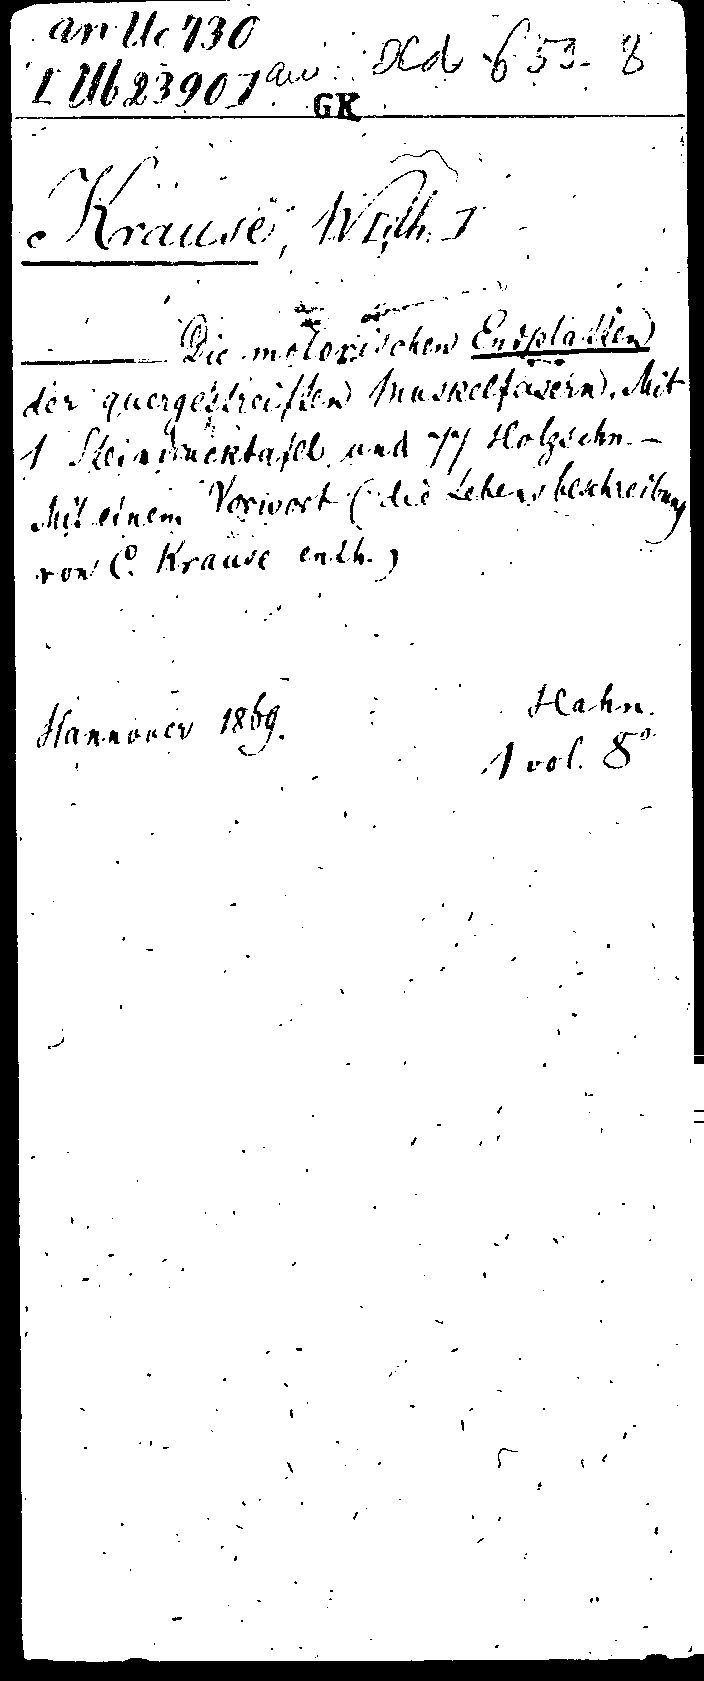 an Uc 730
I Ub 2390 I an Xd 653-8
GK
Krause, Wilh. I
Die motorischen Endplatten
der quergestreiften Muskelfasern. Mit
1 Steindrucktafel und 77 Holzschn. –
Mit einem Vorwort (die Lebensbeschreibung
von C. Krause enth.)
Hannover 1869. Hahn.
1 vol. 8°